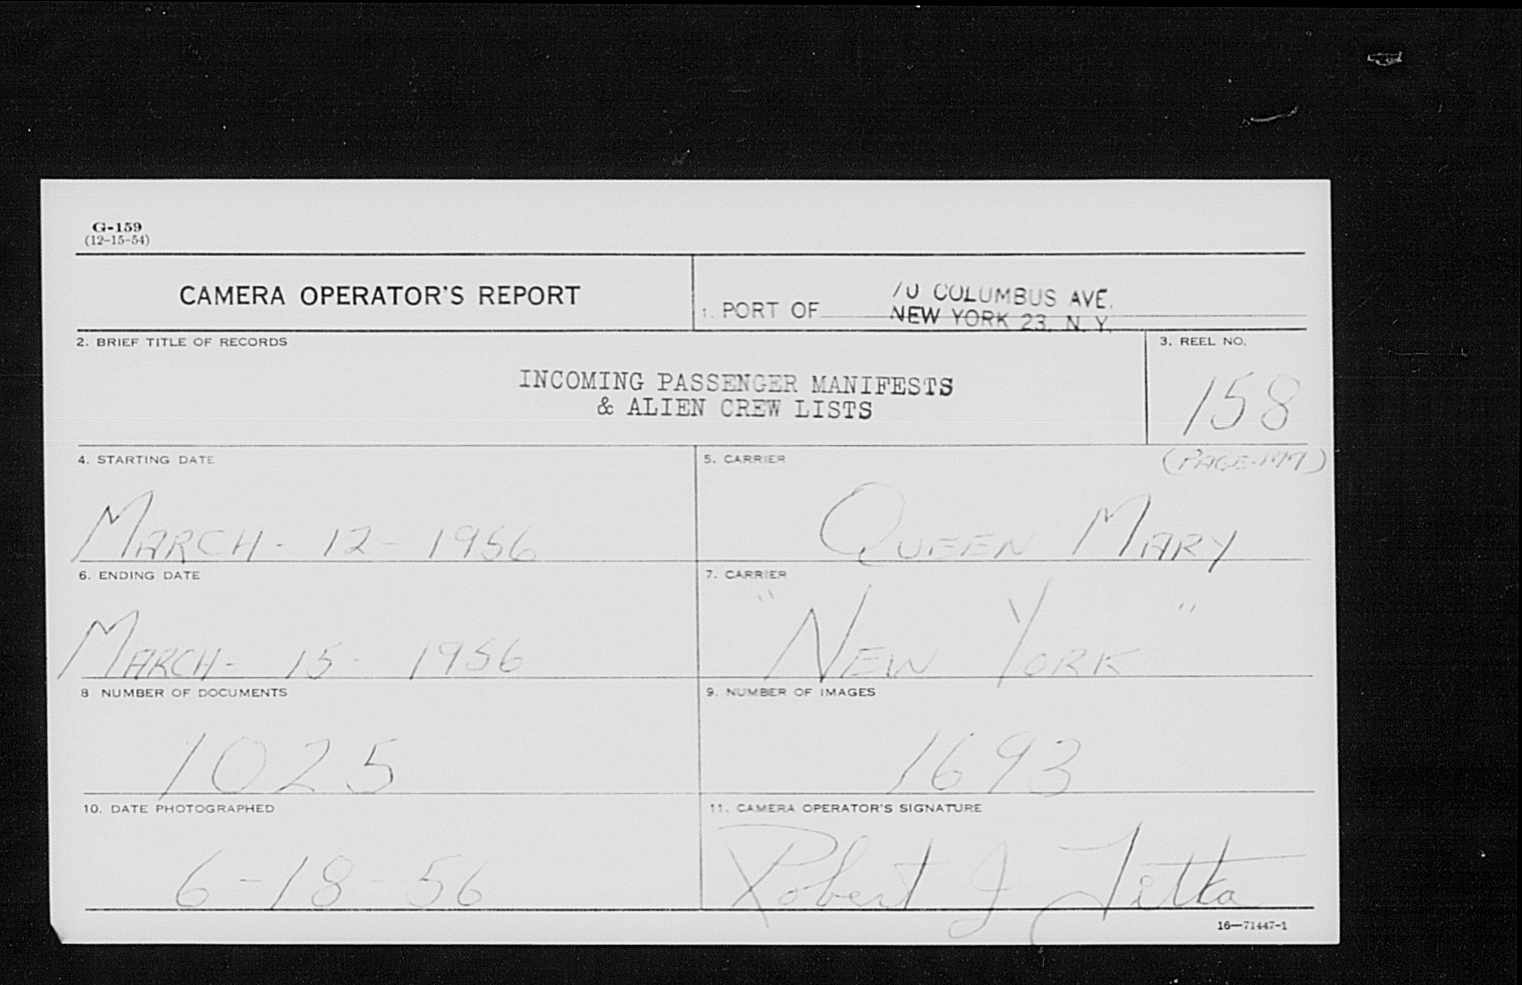 G-159
(12-15-54)
CAMERA OPERATOR'S REPORT
1. PORT OF 70 COLUMBUS AVE.
NEW YORK 23, N. Y.
2. BRIEF TITLE OF RECORDS
INCOMING PASSENGER MANIFESTS
& ALIEN CREW LISTS
3. REEL NO.
158
4. STARTING DATE
MARCH - 12 - 1956
5. CARRIER
(PAGE
QUEEN MARY
6. ENDING DATE
MARCH - 15 - 1956
7. CARRIER
"NEW YORK"
8 NUMBER OF DOCUMENTS
1025
9. NUMBER OF IMAGES
1693
10. DATE PHOTOGRAPHED
6-18-56
11. CAMERA OPERATOR'S SIGNATURE
Robert J
16—71447-1